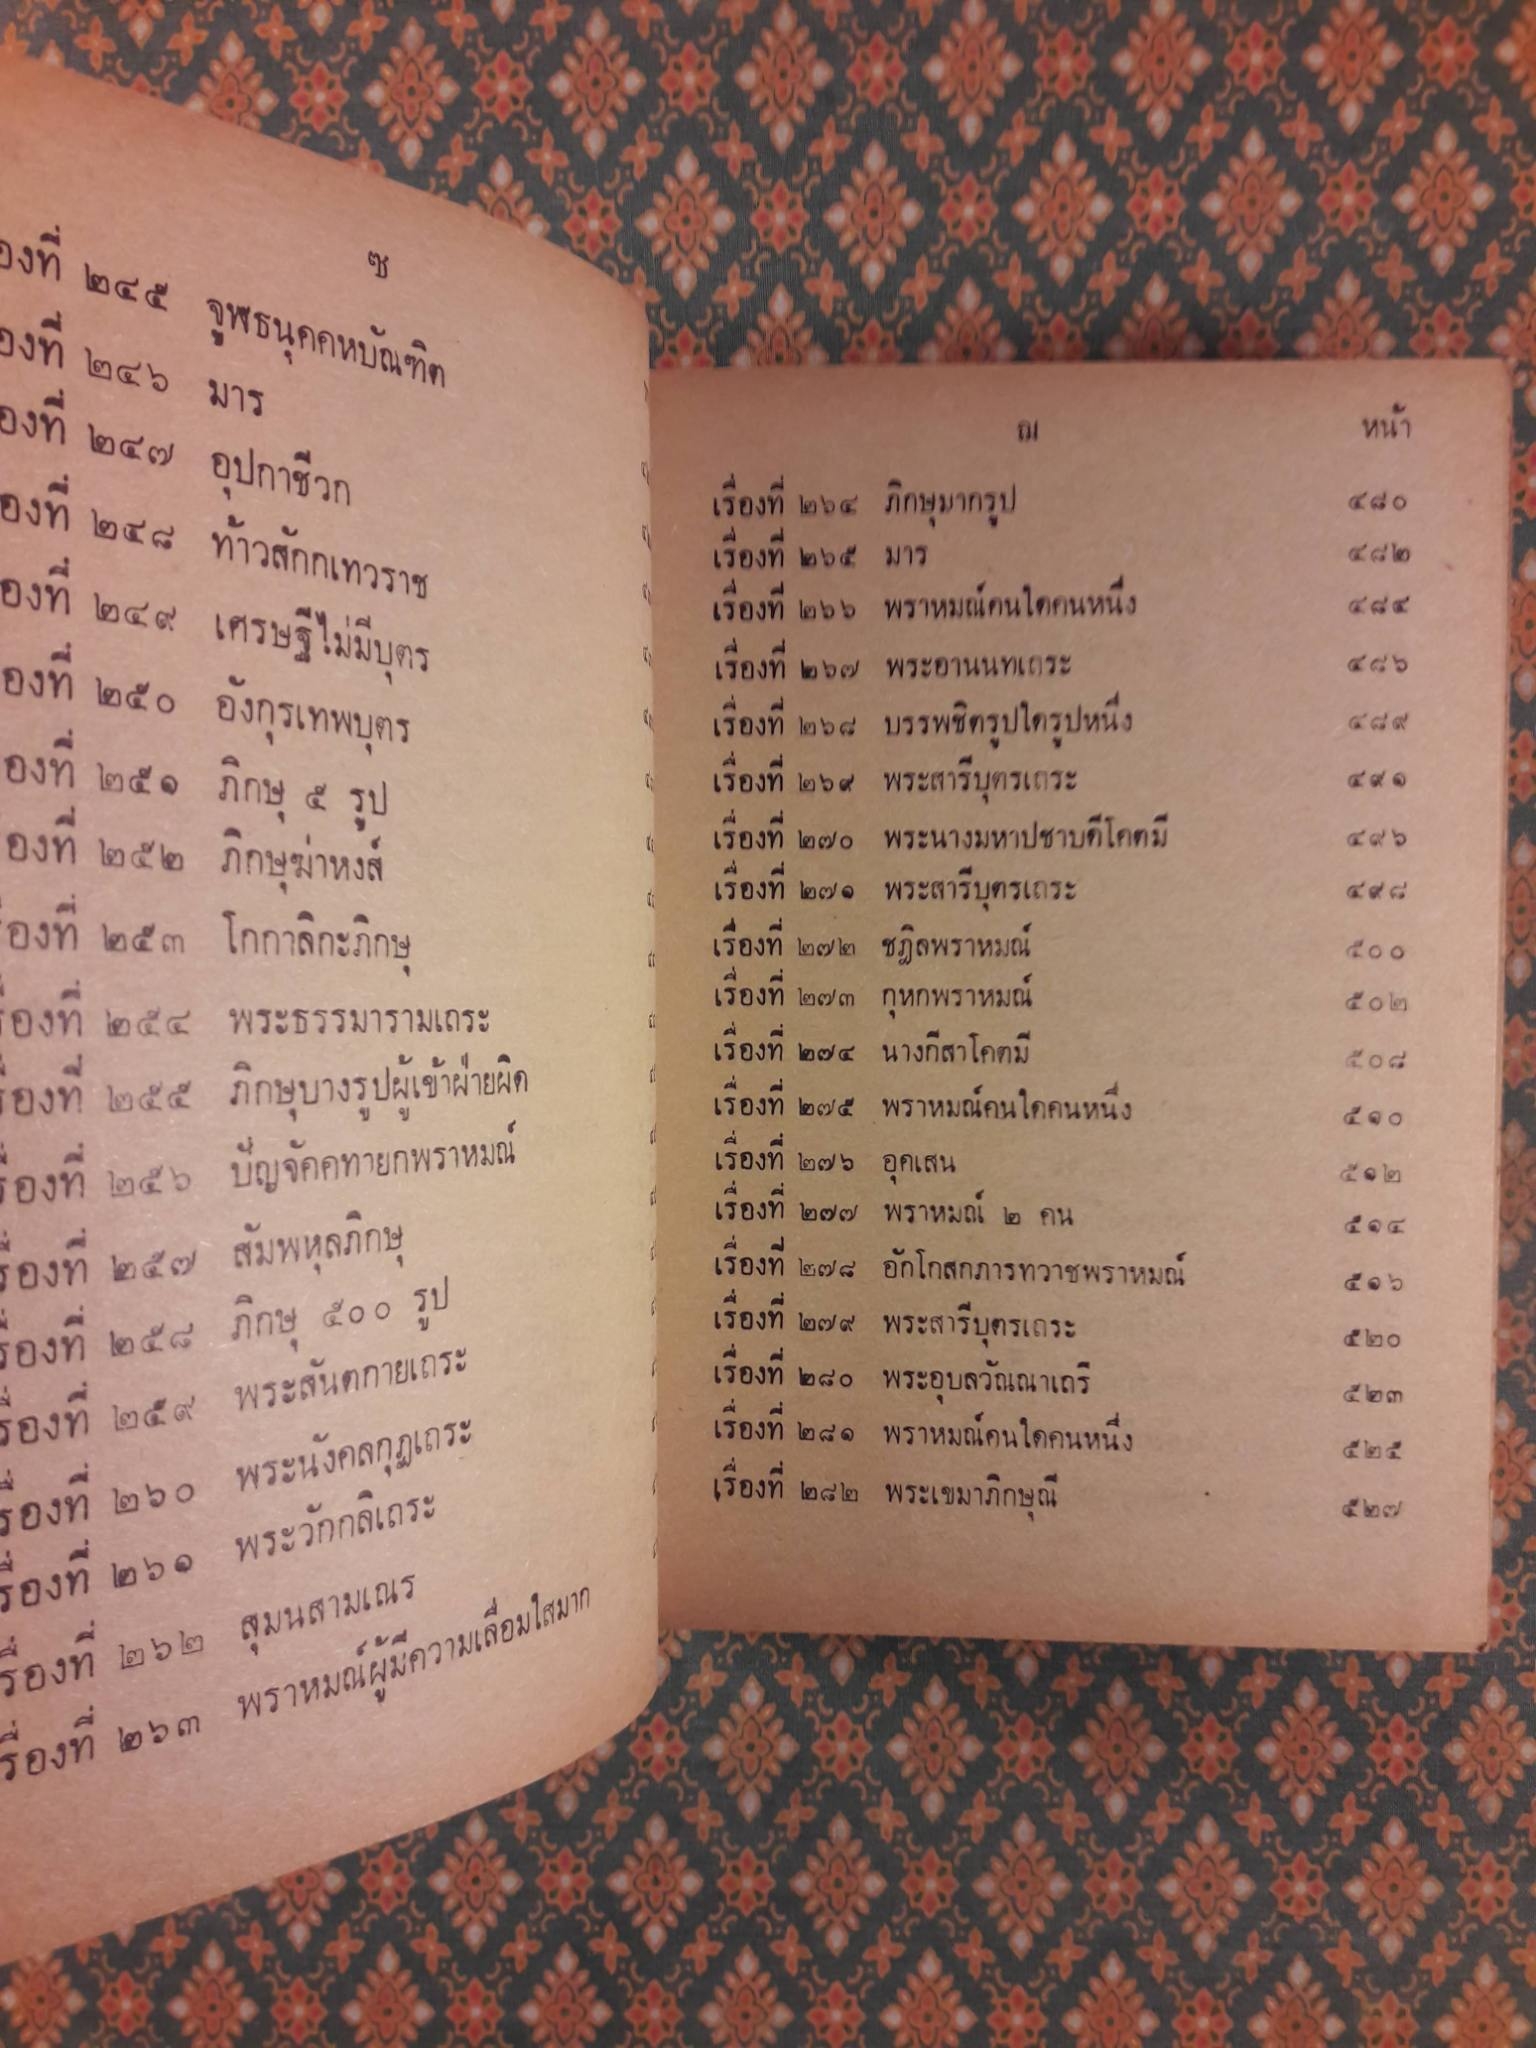 ซ
องที่ ๒๔๕ จูฬธนุคคหบัณฑิต
องที่ ๒๔๖ มาร
องที่ ๒๔๗ อุปกาชีวก
องที่ ๒๔๘ ท้าวสักกเทวราช
องที่ ๒๔๙ เศรษฐีไม่มีบุตร
องที่ ๒๕๐ อังกุรเทพบุตร
องที่ ๒๕๑ ภิกษุ ๕ รูป
องที่ ๒๕๒ ภิกษุฆ่าหงส์
องที่ ๒๕๓ โกกาลิกะภิกษุ
รื่องที่ ๒๕๔ พระธรรมารามเถระ
รื่องที่ ๒๕๕ ภิกษุบางรูปผู้เข้าฝ่ายผิด
รื่องที่ ๒๕๖ ปัญจัคคทายกพราหมณ์
รื่องที่ ๒๕๗ สัมพหุลภิกษุ
รื่องที่ ๒๕๘ ภิกษุ ๕๐๐ รูป
รื่องที่ ๒๕๙ พระสันตกายเถระ
รื่องที่ ๒๖๐ พระนังคลกุฏเถระ
รื่องที่ ๒๖๑ พระวักกลิเถระ
รื่องที่ ๒๖๒ สุมนสามเณร
รื่องที่ ๒๖๓ พราหมณ์ผู้มีความเลื่อมใสมาก
ฌ หน้า
เรื่องที่ ๒๖๔ ภิกษุมากรูป ๔๘๐
เรื่องที่ ๒๖๕ มาร ๔๘๒
เรื่องที่ ๒๖๖ พราหมณ์คนใดคนหนึ่ง ๔๘๔
เรื่องที่ ๒๖๗ พระอานนทเถระ ๔๘๖
เรื่องที่ ๒๖๘ บรรพชิตรูปใดรูปหนึ่ง ๔๘๙
เรื่องที่ ๒๖๙ พระสารีบุตรเถระ ๔๙๑
เรื่องที่ ๒๗๐ พระนางมหาปชาบดีโคตมี ๔๙๖
เรื่องที่ ๒๗๑ พระสารีบุตรเถระ ๔๙๘
เรื่องที่ ๒๗๒ ชฎิลพราหมณ์ ๕๐๐
เรื่องที่ ๒๗๓ กุหกพราหมณ์ ๕๐๒
เรื่องที่ ๒๗๔ นางกีสาโคตมี ๕๐๘
เรื่องที่ ๒๗๕ พราหมณ์คนใดคนหนึ่ง ๕๑๐
เรื่องที่ ๒๗๖ อุคเสน ๕๑๒
เรื่องที่ ๒๗๗ พราหมณ์ ๒ คน ๕๑๔
เรื่องที่ ๒๗๘ อักโกสกภารทวาชพราหมณ์ ๕๑๖
เรื่องที่ ๒๗๙ พระสารีบุตรเถระ ๕๒๐
เรื่องที่ ๒๘๐ พระอุบลวัณณาเถรี ๕๒๓
เรื่องที่ ๒๘๑ พราหมณ์คนใดคนหนึ่ง ๕๒๕
เรื่องที่ ๒๘๒ พระเขมาภิกษุณี ๕๒๗